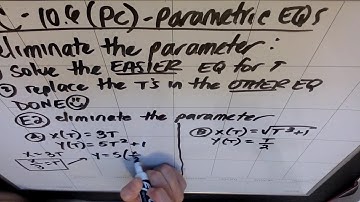 C - 10.6 (PC) - Parametric EQs
eliminate the parameter:
solve the EASIER EQ for T
2 replace the T's in the OTHER EQ
DONE
Ex eliminate the parameter
A x(T) = 3T
Y(T) = 5T² + 1
x = 3T
x/3 = T
y = 5(x/3
B x(T) = √T³+1
Y(T) = T/2